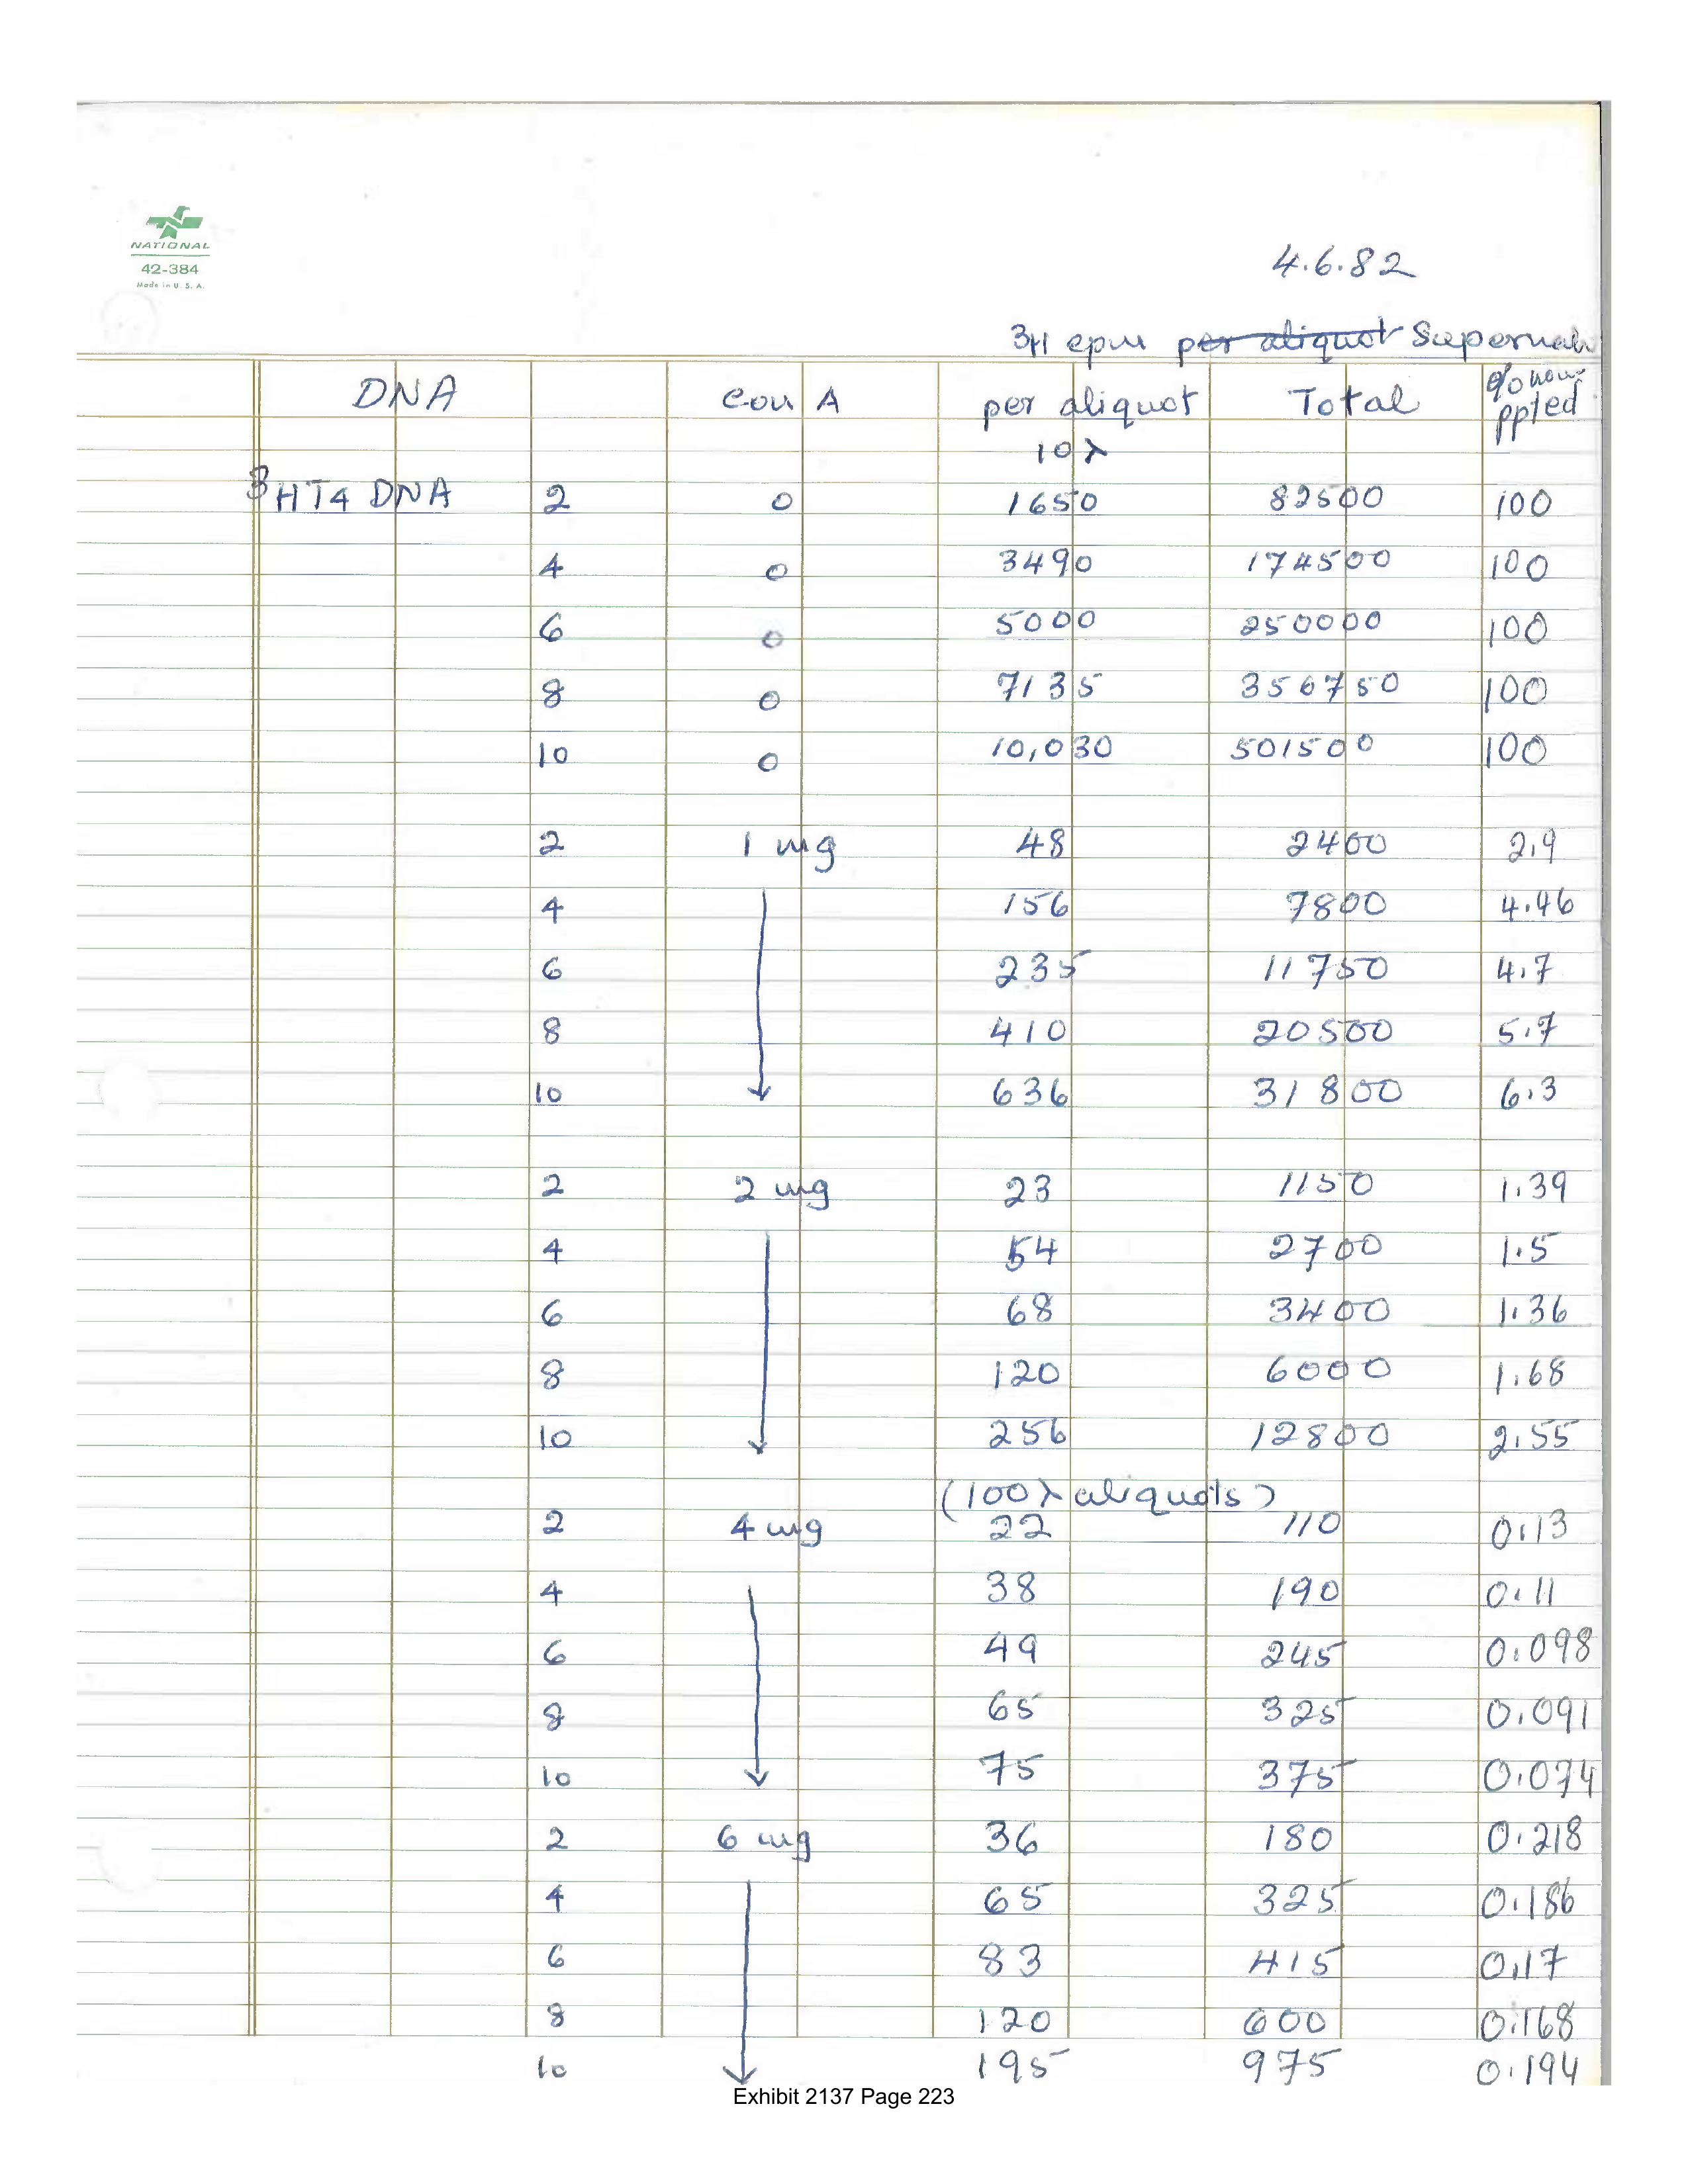 NATIONAL
42-384
Made in U. S. A.
4.6.82
3H cpm per aliquot Supernat
DNA Con A per aliquot Total % non-
ppted
10 λ
3HT4 DNA 2 0 1650 82500 100
4 0 3490 174500 100
6 0 5000 250000 100
8 0 7135 356750 100
10 0 10,030 501500 100
2 1 mg 48 2400 2.9
4 156 7800 4.46
6 235 11750 4.7
8 410 20500 5.7
10 636 31800 6.3
2 2 mg 23 1150 1.39
4 54 2700 1.5
6 68 3400 1.36
8 120 6000 1.68
10 256 12800 2.55
(100 λ aliquots)
2 4 mg 22 110 0.13
4 38 190 0.11
6 49 245 0.098
8 65 325 0.091
10 75 375 0.074
2 6 mg 36 180 0.218
4 65 325 0.186
6 83 415 0.17
8 120 600 0.168
10 195 975 0.194
Exhibit 2137 Page 223